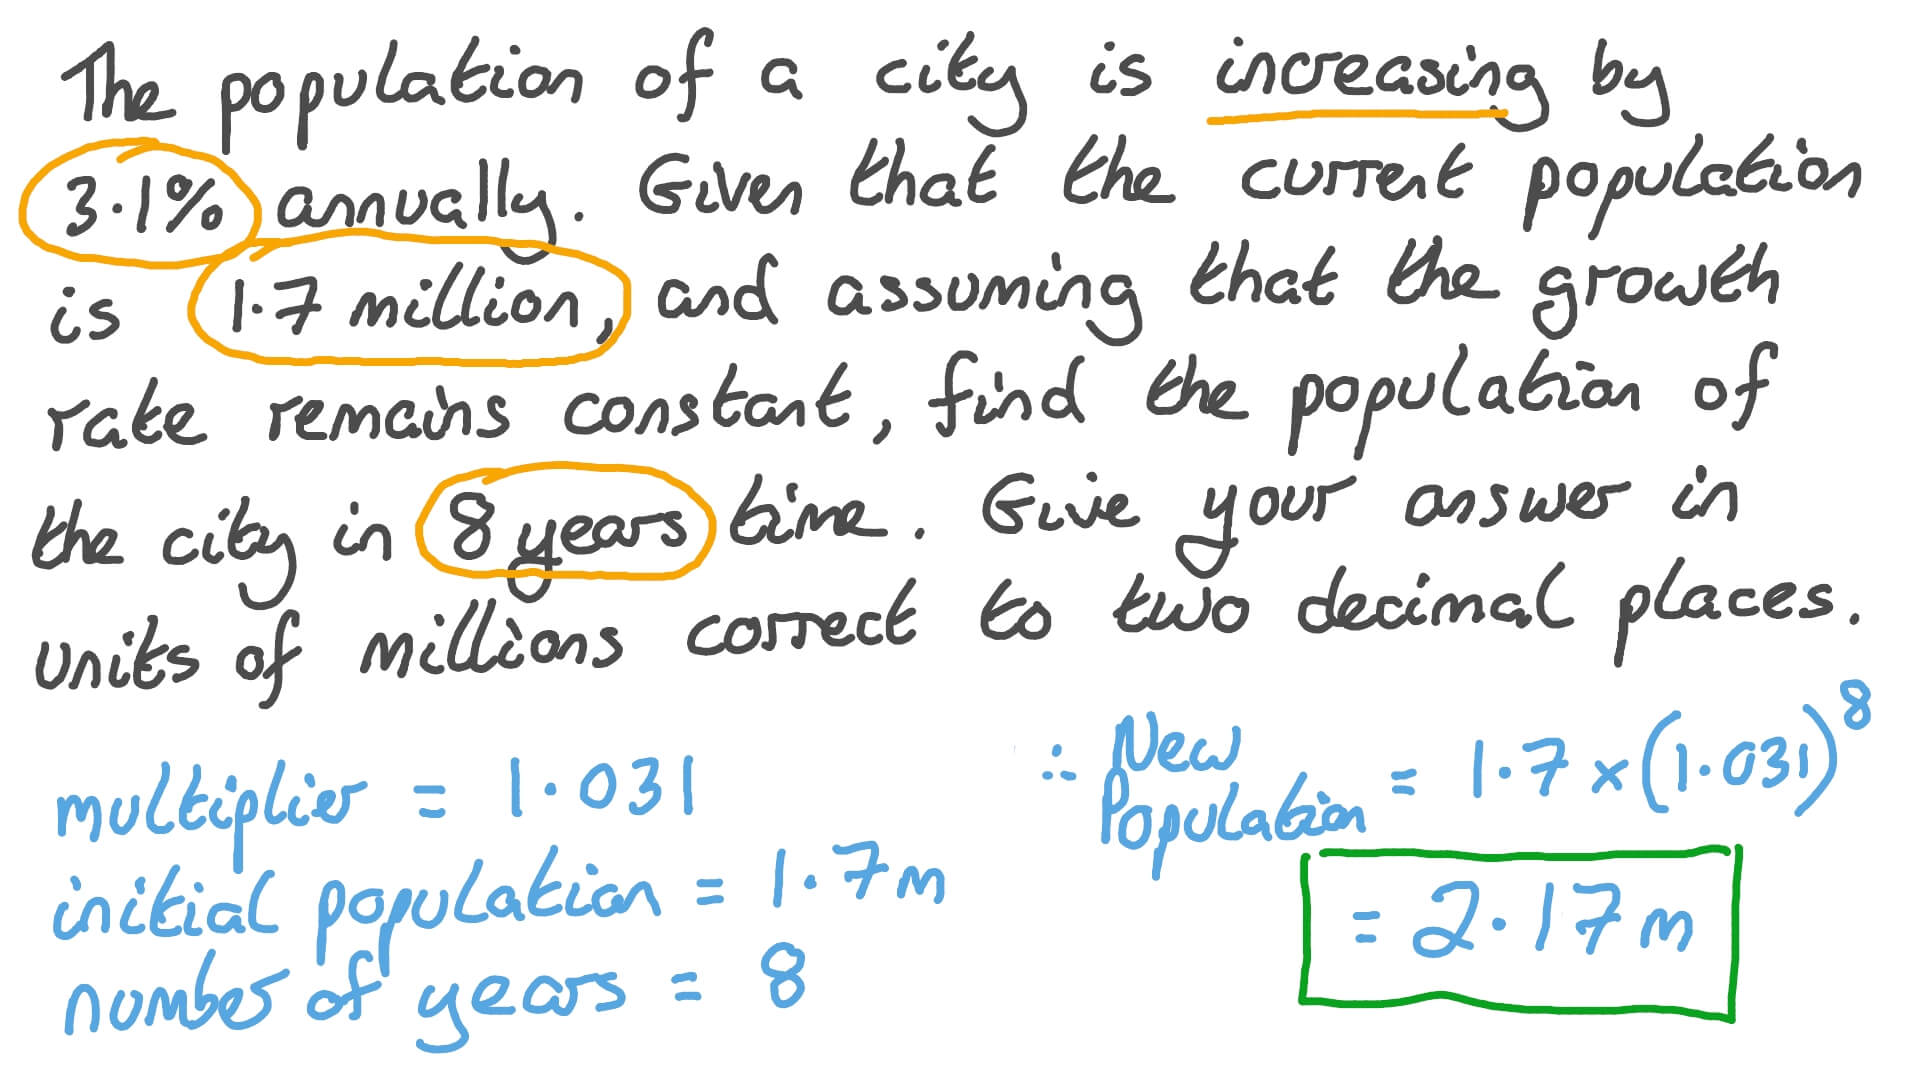 The population of a city is increasing by
3.1% annually. Given that the current population
is 1.7 million, and assuming that the growth
rate remains constant, find the population of
the city in 8 years time. Give your answer in
units of millions correct to two decimal places.
multiplier = 1.031
initial population = 1.7m
number of years = 8
∴ New Population = 1.7 × (1.031)⁸
= 2.17m